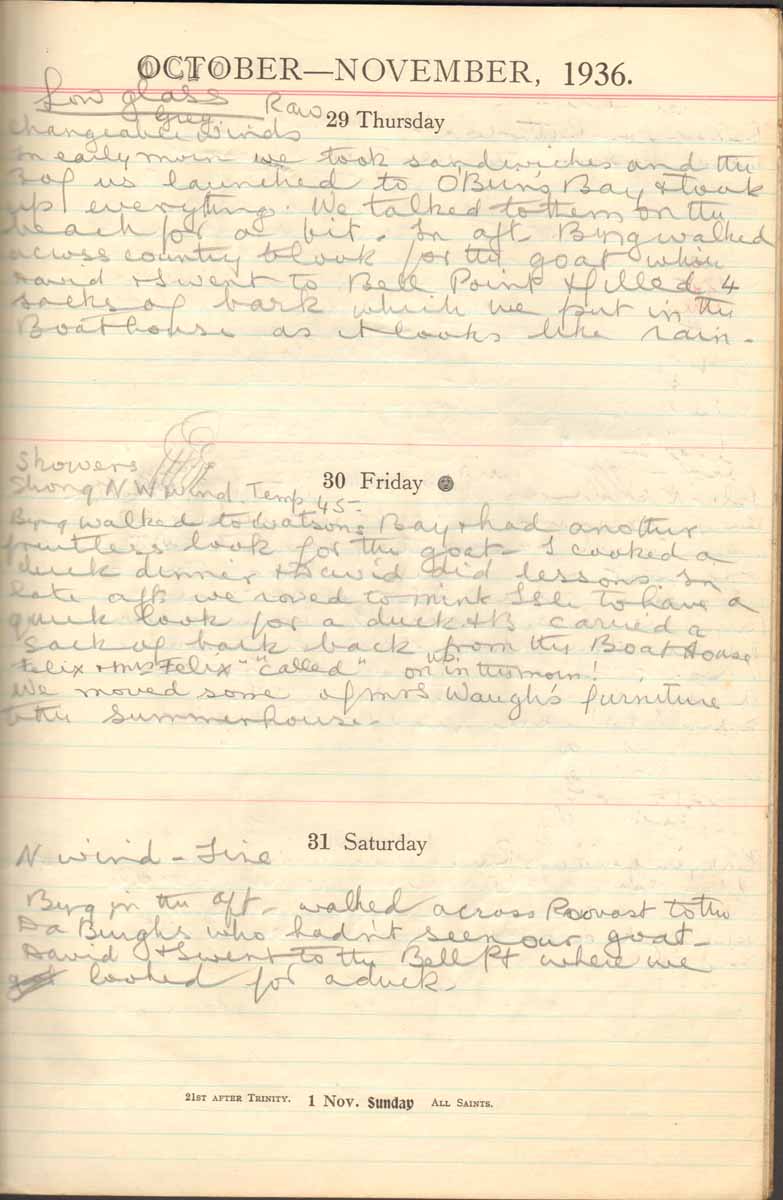 OCTOBER—NOVEMBER, 1936.
Low glass
Grey Raw
29 Thursday
Changeable winds
In early morn we took sandwiches and the
3 of us launched to O'Burn's Bay & took
up everything. We talked to them on the
beach for a bit. In aft. Byng walked
across country to look for the goat when
David & I went to Bell Point & filled 4
sacks of bark which we put in the
Boathouse as it looks like rain.
Showers
30 Friday
Strong N.W wind. Temp 45-
Byng walked to Watsons Bay & had another
fruitless look for the goat. I cooked a
duck dinner & David did lessons. In
late aft we rowed to Mink Isle to have a
quick look for a duck & B carried a
sack of bark back from the Boat House
Felix & Mrs Felix "called" on us in the morn!
We moved some of Mrs Waugh's furniture
to the Summerhouse.
31 Saturday
N wind - Fine
Byng in the aft. walked across Provost to the
Da Burghs who hadn't seen our goat.
David & I went to the Bell Pt where we
got looked for a duck.
21ST AFTER TRINITY. 1 Nov. Sunday ALL SAINTS.